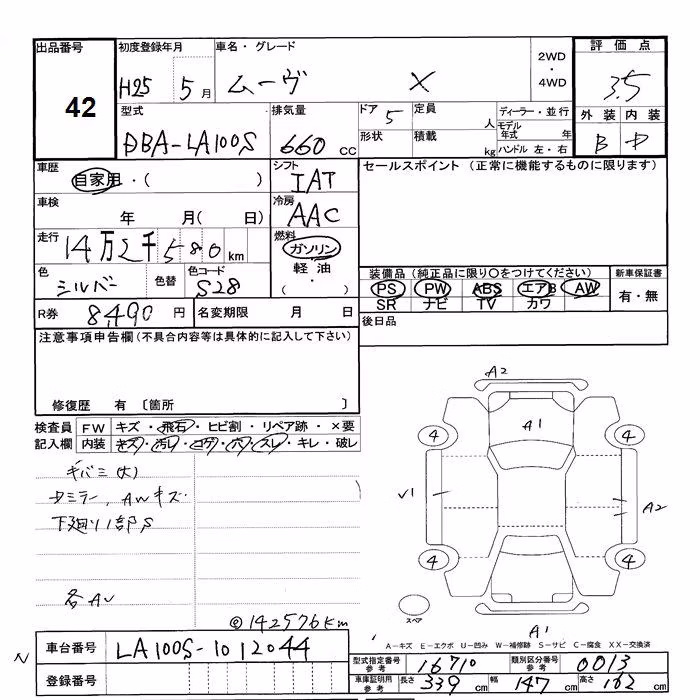 出品番号 初度登録年月 車名・グレード 評価点
42 H25 5月 ムーヴ X 2WD・4WD 3.5
型式 排気量 ドア 5 定員 人 ディーラー・並行 外装 内装
DBA-LA100S 660 CC 形状 積載 kg モデル年式 年 B
ハンドル 左・右
車歴 自家用・( ) シフト IAT セールスポイント (正常に機能するものに限ります)
車検 年 月( 日) 冷房 AAC
走行 14万2千580km 燃料 ガソリン・軽油・( )
色 シルバー 色替 色コード S28
装備品 (純正品に限り〇をつけてください) 新車保証書
PS PW ABS エアB AW 有・無
SR ナビ TV カワ
R券 8,490円 名変期限 月 日 後日品
注意事項申告欄(不具合内容等は具体的に記入して下さい)
修復歴 有 〔箇所 〕
検査員記入欄 FW キズ・飛石・ヒビ割・リペア跡・×要
内装 キズ・汚レ・コゲ・穴・スレ・キレ・破レ
ギバミ(大)
ミラー、AWキズ
下廻り1部S
各AU
◎142576km
A2
A1
4 4
V1 A2
4 4
スペア
A1
A-キズ E-エクボ U-凹み W-補修跡 S-サビ C-腐食 XX-交換済
N 車台番号 LA100S-1012044
登録番号
型式指定番号 参考 16710 類別区分番号 参考 0013
車庫証明用 参考 長さ 339cm 幅 147cm 高さ 162cm